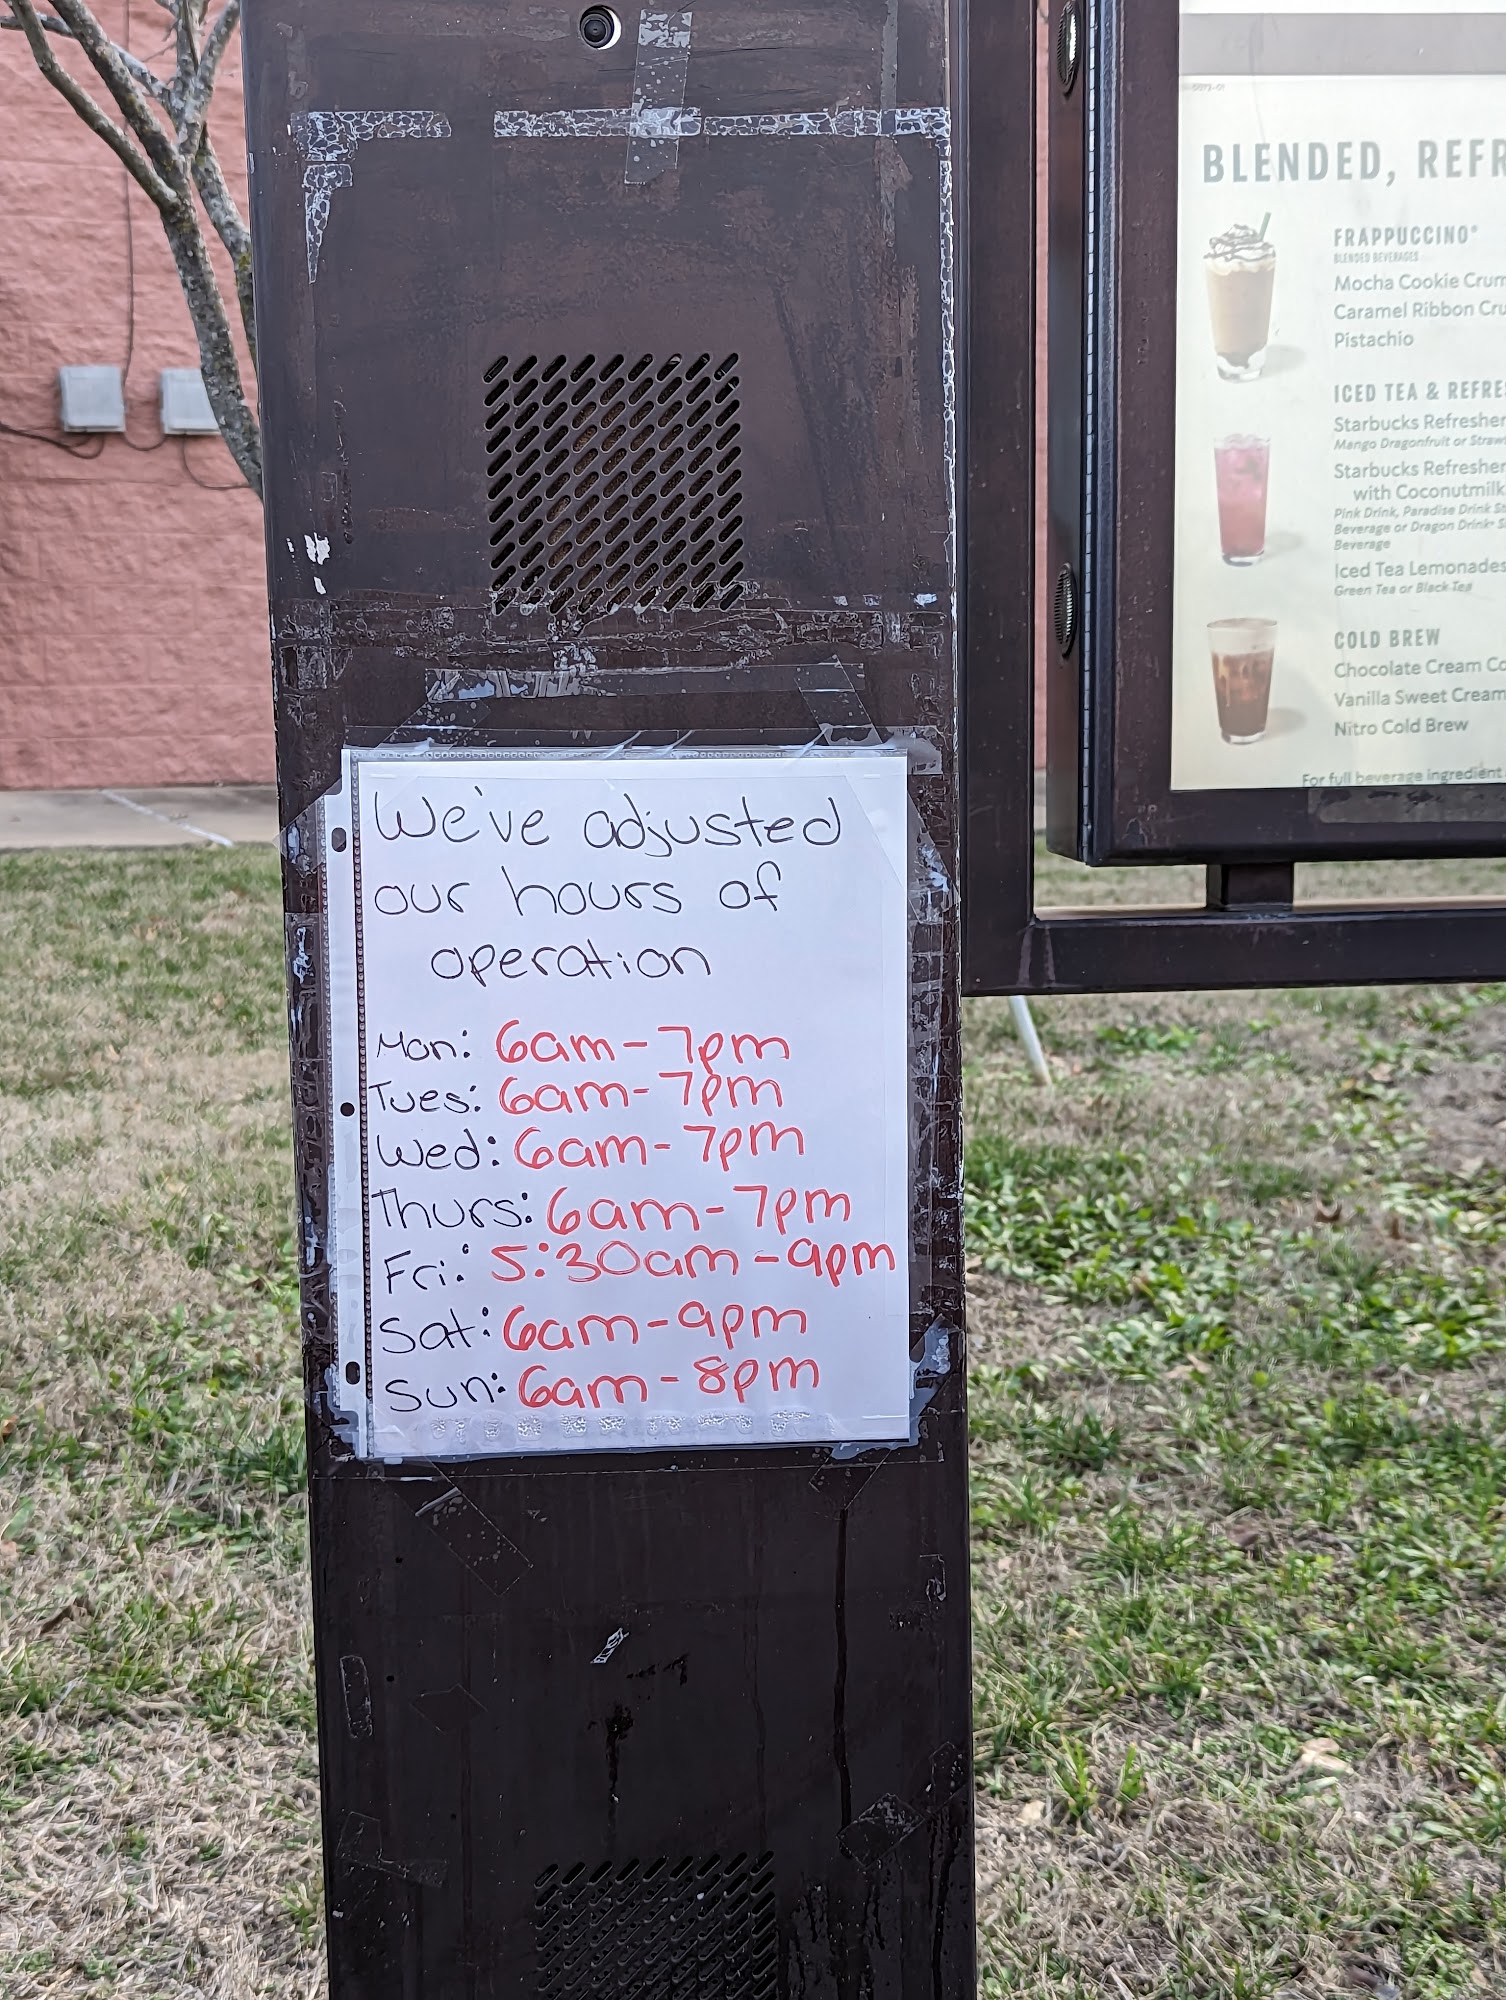 We've adjusted
our hours of
operation
Mon: 6am-7pm
Tues: 6am-7pm
Wed: 6am-7pm
Thurs: 6am-7pm
Fri: 5:30am-9pm
Sat: 6am-9pm
Sun: 6am-8pm
BLENDED, REFR
FRAPPUCCINO®
BLENDED BEVERAGES
Mocha Cookie Crum
Caramel Ribbon Cru
Pistachio
ICED TEA & REFRE
Starbucks Refresher
Mango Dragonfruit or Straw
Starbucks Refresher
with Coconutmilk
Pink Drink, Paradise Drink St
Beverage or Dragon Drink®
Beverage
Iced Tea Lemonades
Green Tea or Black Tea
COLD BREW
Chocolate Cream Co
Vanilla Sweet Cream
Nitro Cold Brew
For full beverage ingredient